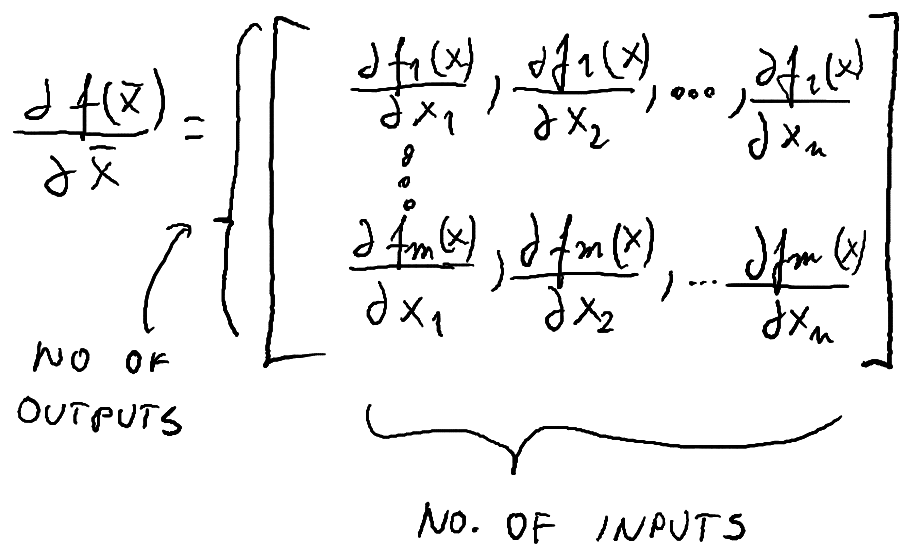 ∂f(x̄)/∂x̄ = { [ ∂f₁(x)/∂x₁ , ∂f₁(x)/∂x₂ , ... , ∂f₁(x)/∂xₙ
⋮
∂fₘ(x)/∂x₁ , ∂fₘ(x)/∂x₂ , ... ∂fₘ(x)/∂xₙ ]
NO OF
OUTPUTS
NO. OF INPUTS